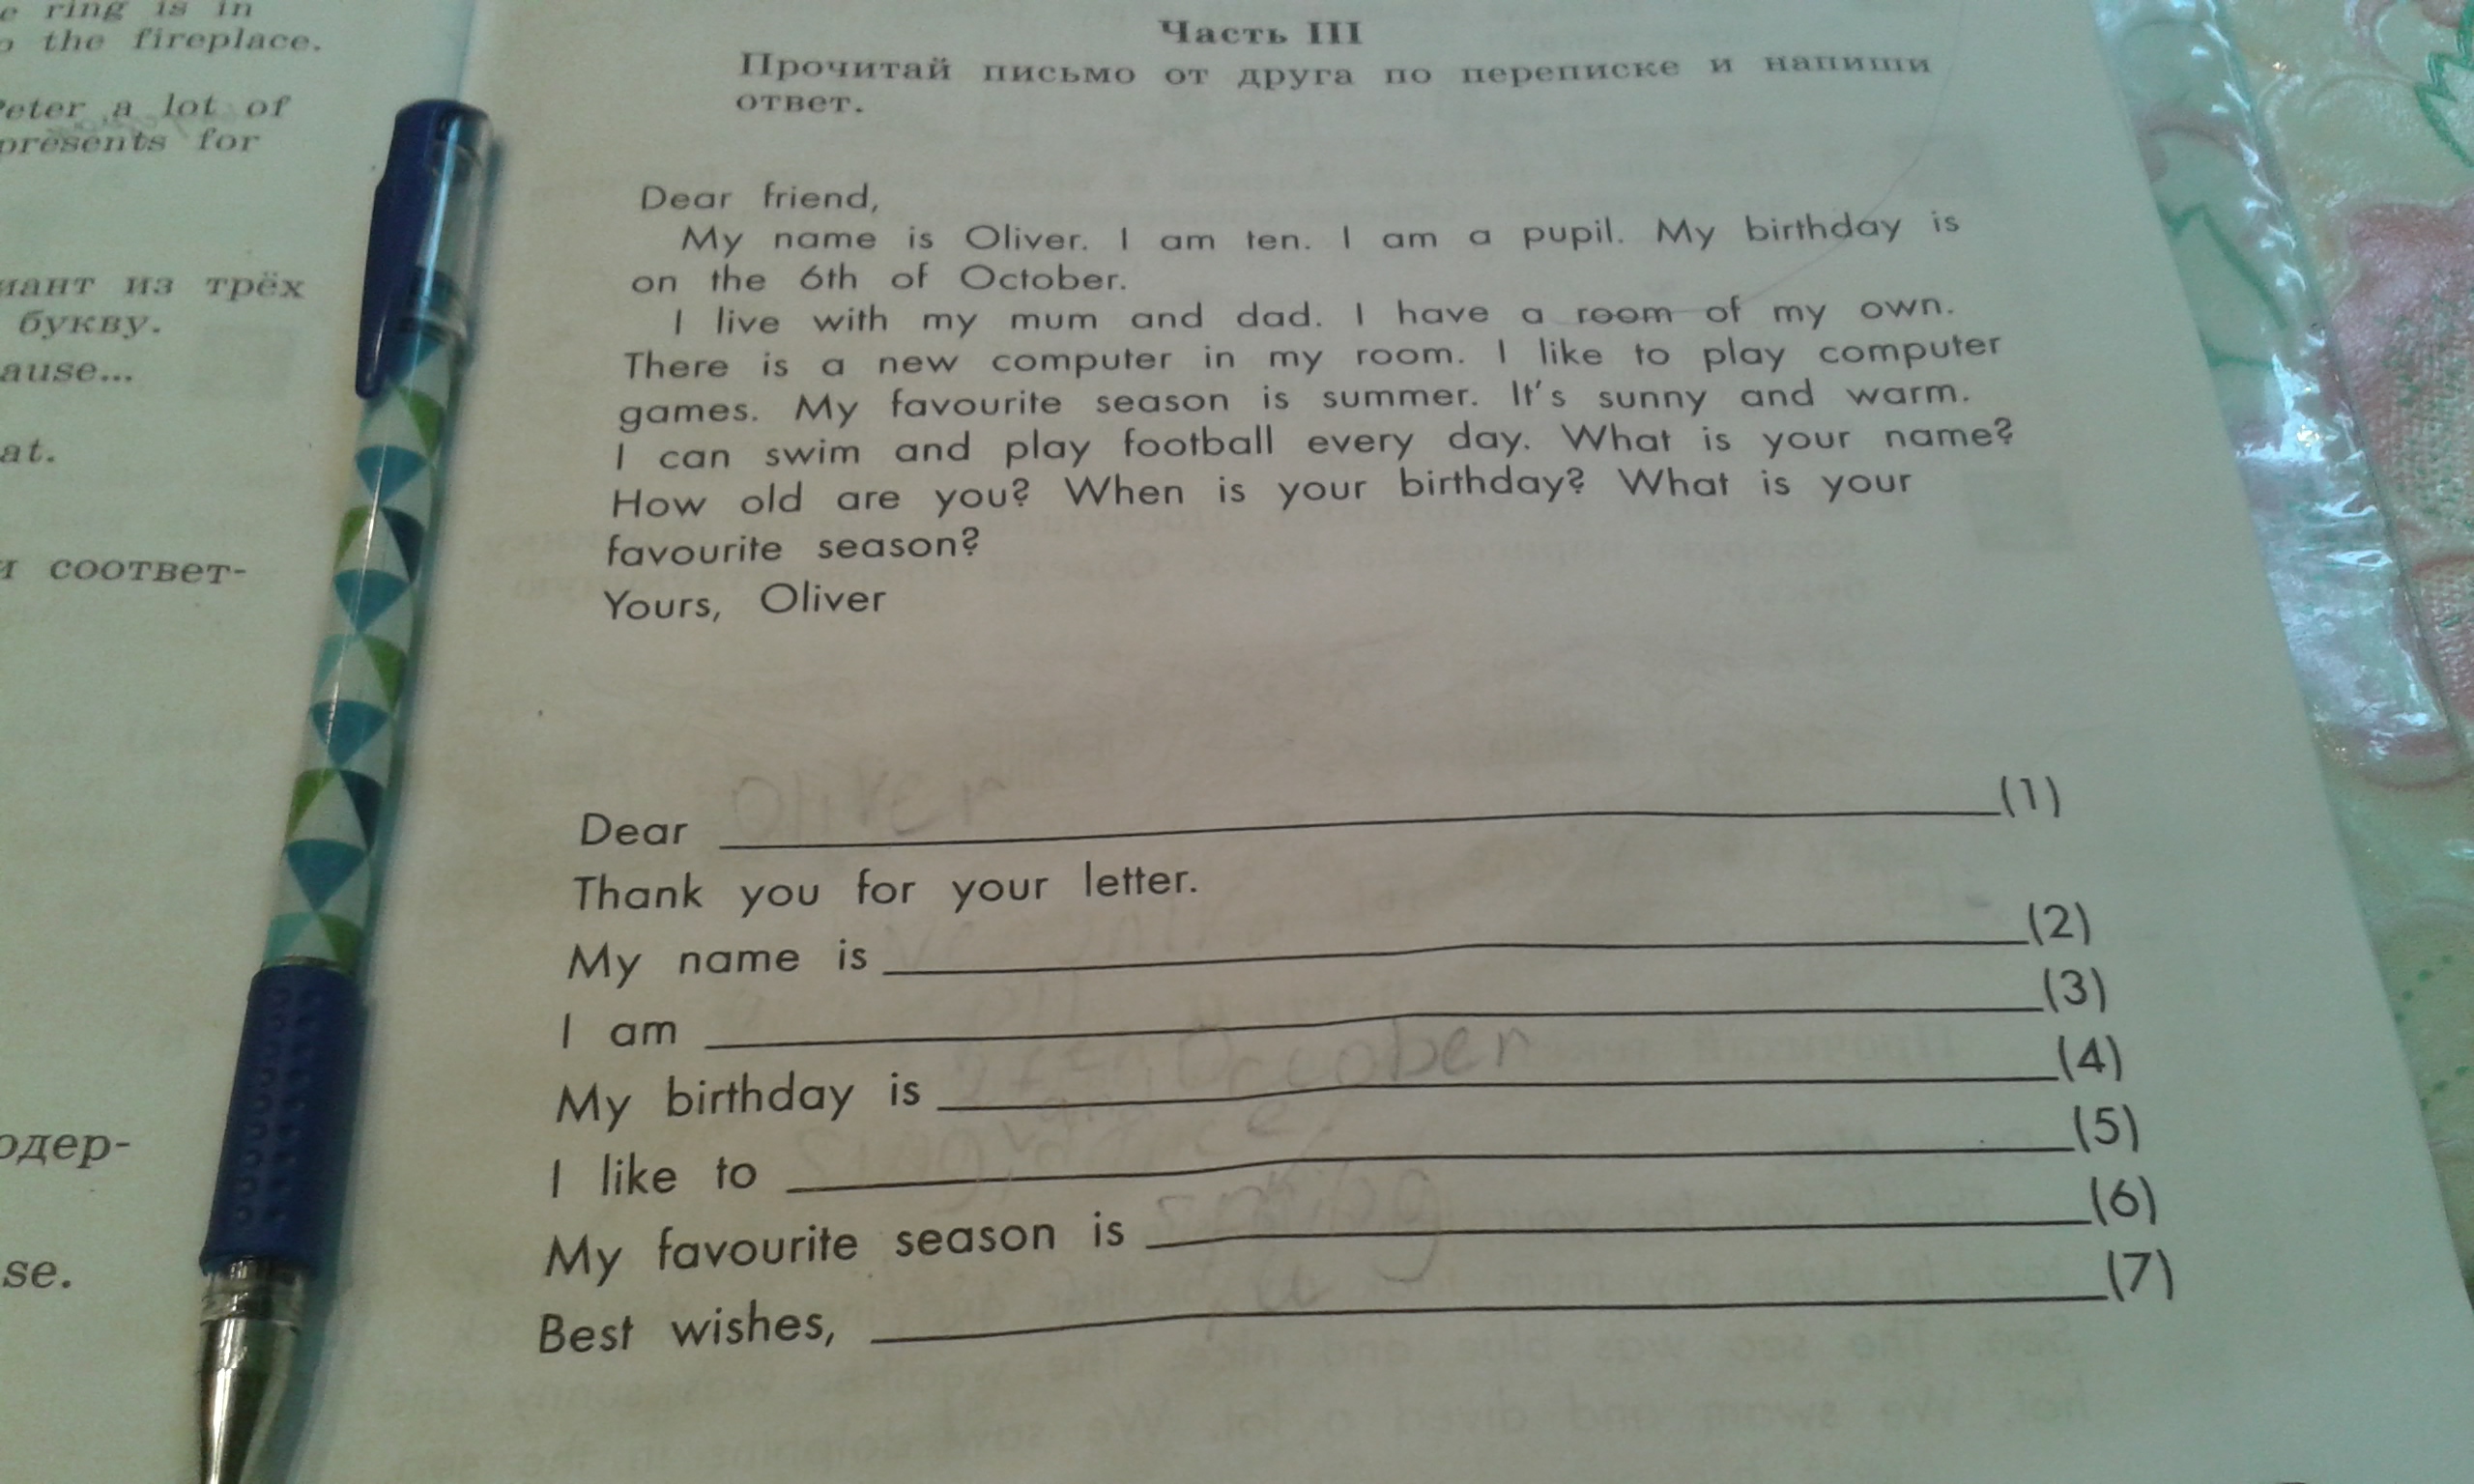 ring is in
the fireplace.
Peter a lot of
presents for
из трёх
букву.
at.
соответ-
Часть III
Прочитай письмо от друга по переписке и напиши
ответ.
Dear friend,
My name is Oliver. I am ten. I am a pupil. My birthday is
on the 6th of October.
I live with my mum and dad. I have a room of my own.
There is a new computer in my room. I like to play computer
games. My favourite season is summer. It's sunny and warm.
I can swim and play football every day. What is your name?
How old are you? When is your birthday? What is your
favourite season?
Yours, Oliver
Dear Oliver (1)
Thank you for your letter.
My name is (2)
I am (3)
My birthday is October (4)
I like to (5)
My favourite season is spring (6)
Best wishes, (7)